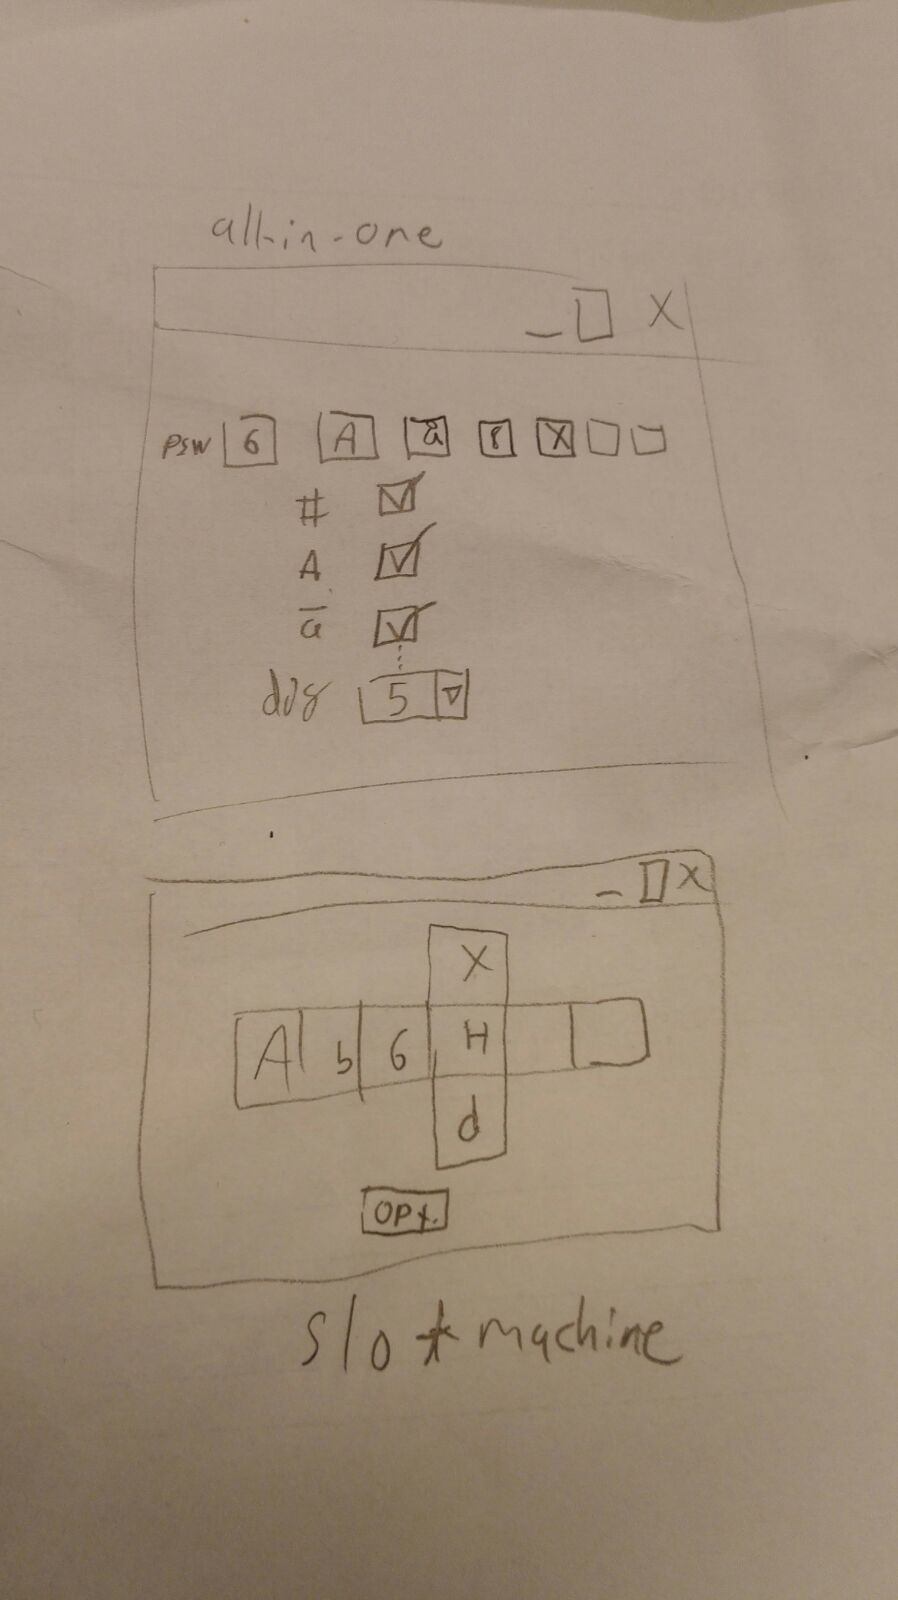 all-in-one
_ X
psw 6 A a 8 X
#
A
a
5
_ X
X
A b 6 H
d
OPt.
slot machine